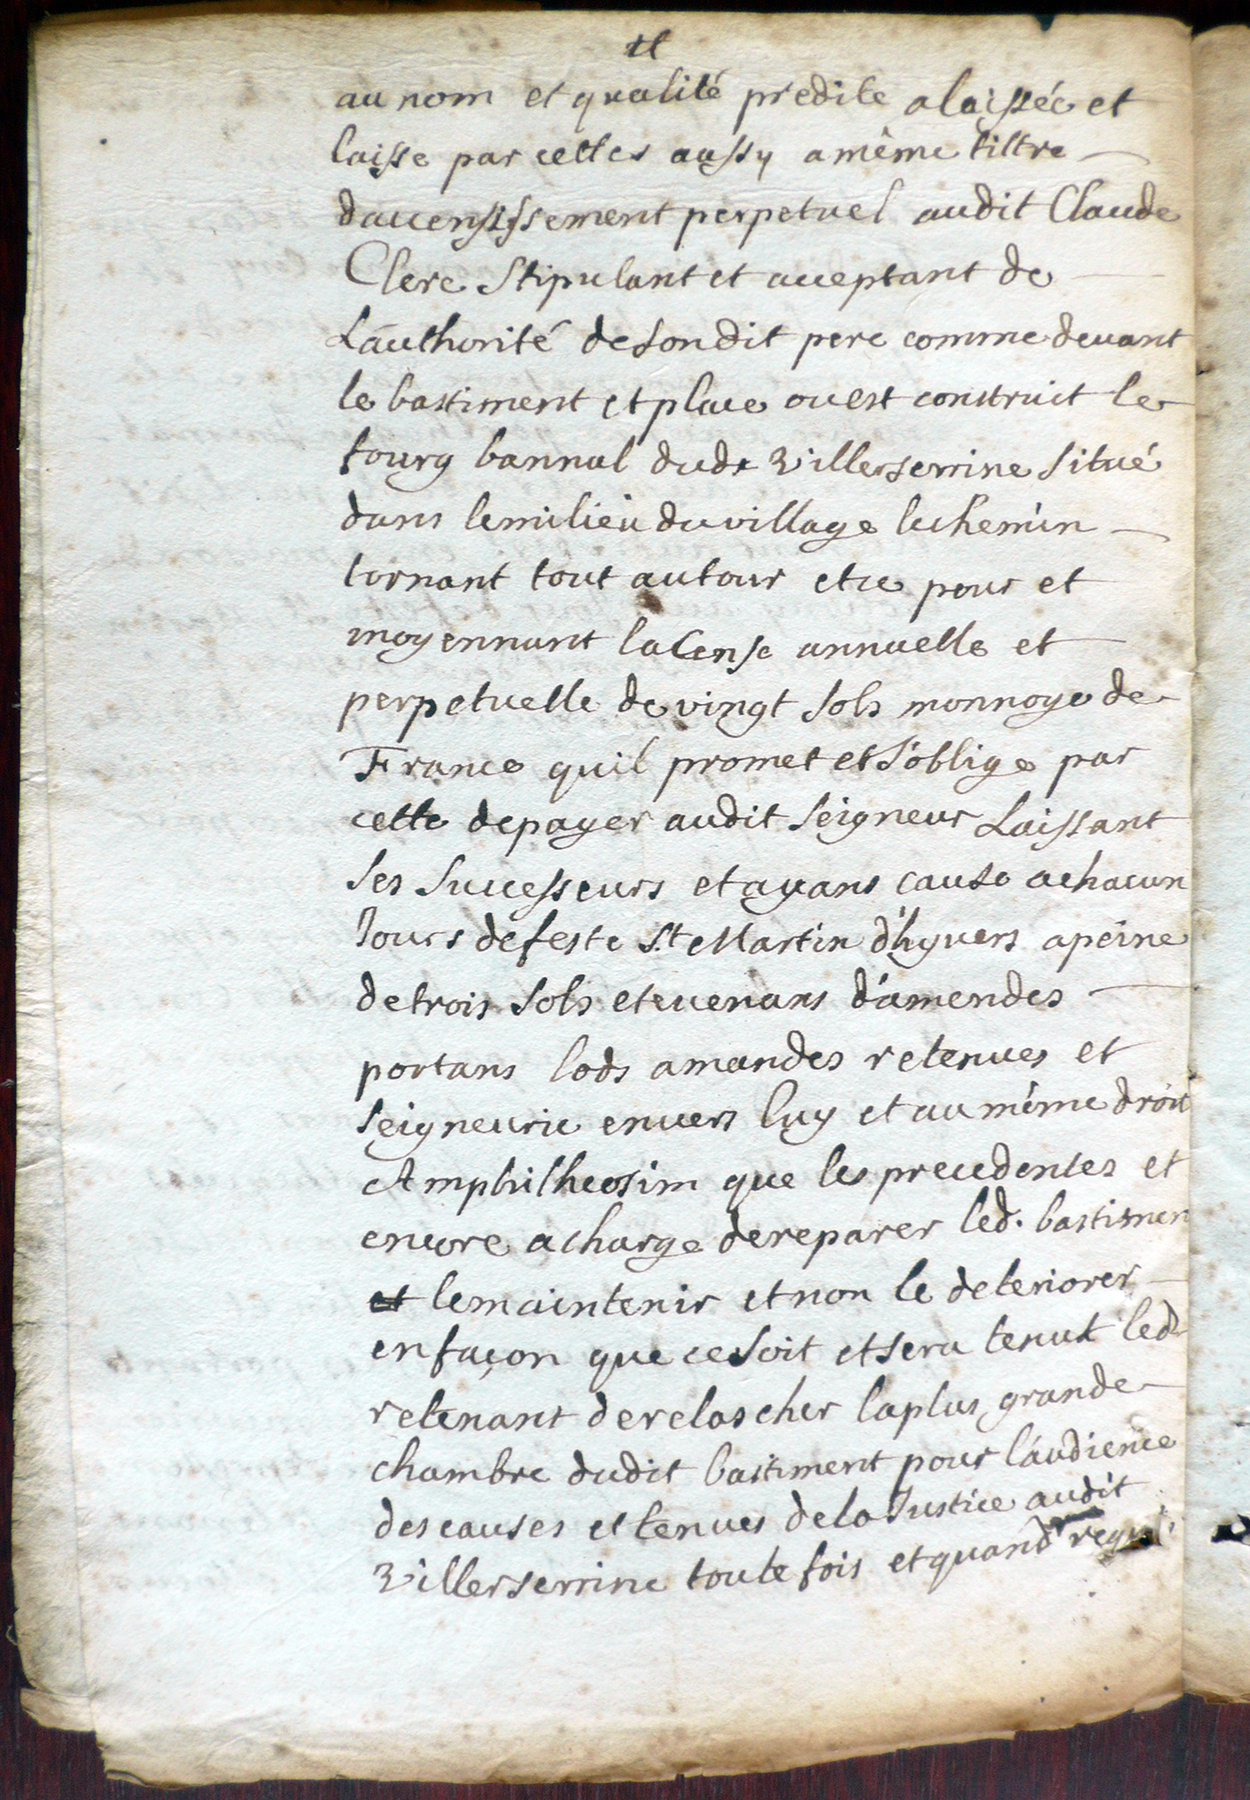 et
au nom et qualité predite a laissée et
laisse par cettes aussy a même tiltre
daccensissement perpetuel audit Claude
Clerc Stipulant et acceptant de
Lauthorité de sondit pere comme devant
le bastiment et place ou est construit le
fourg bannal dudt Villersserrine situé
dans le milieu du village le chemin
tornant tout autour et ce pour et
moyennant la Cense annuelle et
perpetuelle de vingt sols monnoye de
France quil promet et s'oblige par
cette de payer audit seigneur Laissant
ses successeurs et ayans cause a chacun
Jours de feste St Martin d'hyvers a peine
de trois sols et evenans d'amendes
portans lods amandes retenues et
seigneurie envers luy et au même droit
Amphitheosim que les precedentes et
encore a charge de reparer led. bastimen
le maintenir et non le deteriorer
en façon que ce soit et sera tenut led
retenant de relascher la plus grande
chambre dudit bastiment pour l'audience
des causes et tenues de la Justice audit
Villersserrine toute fois et quand